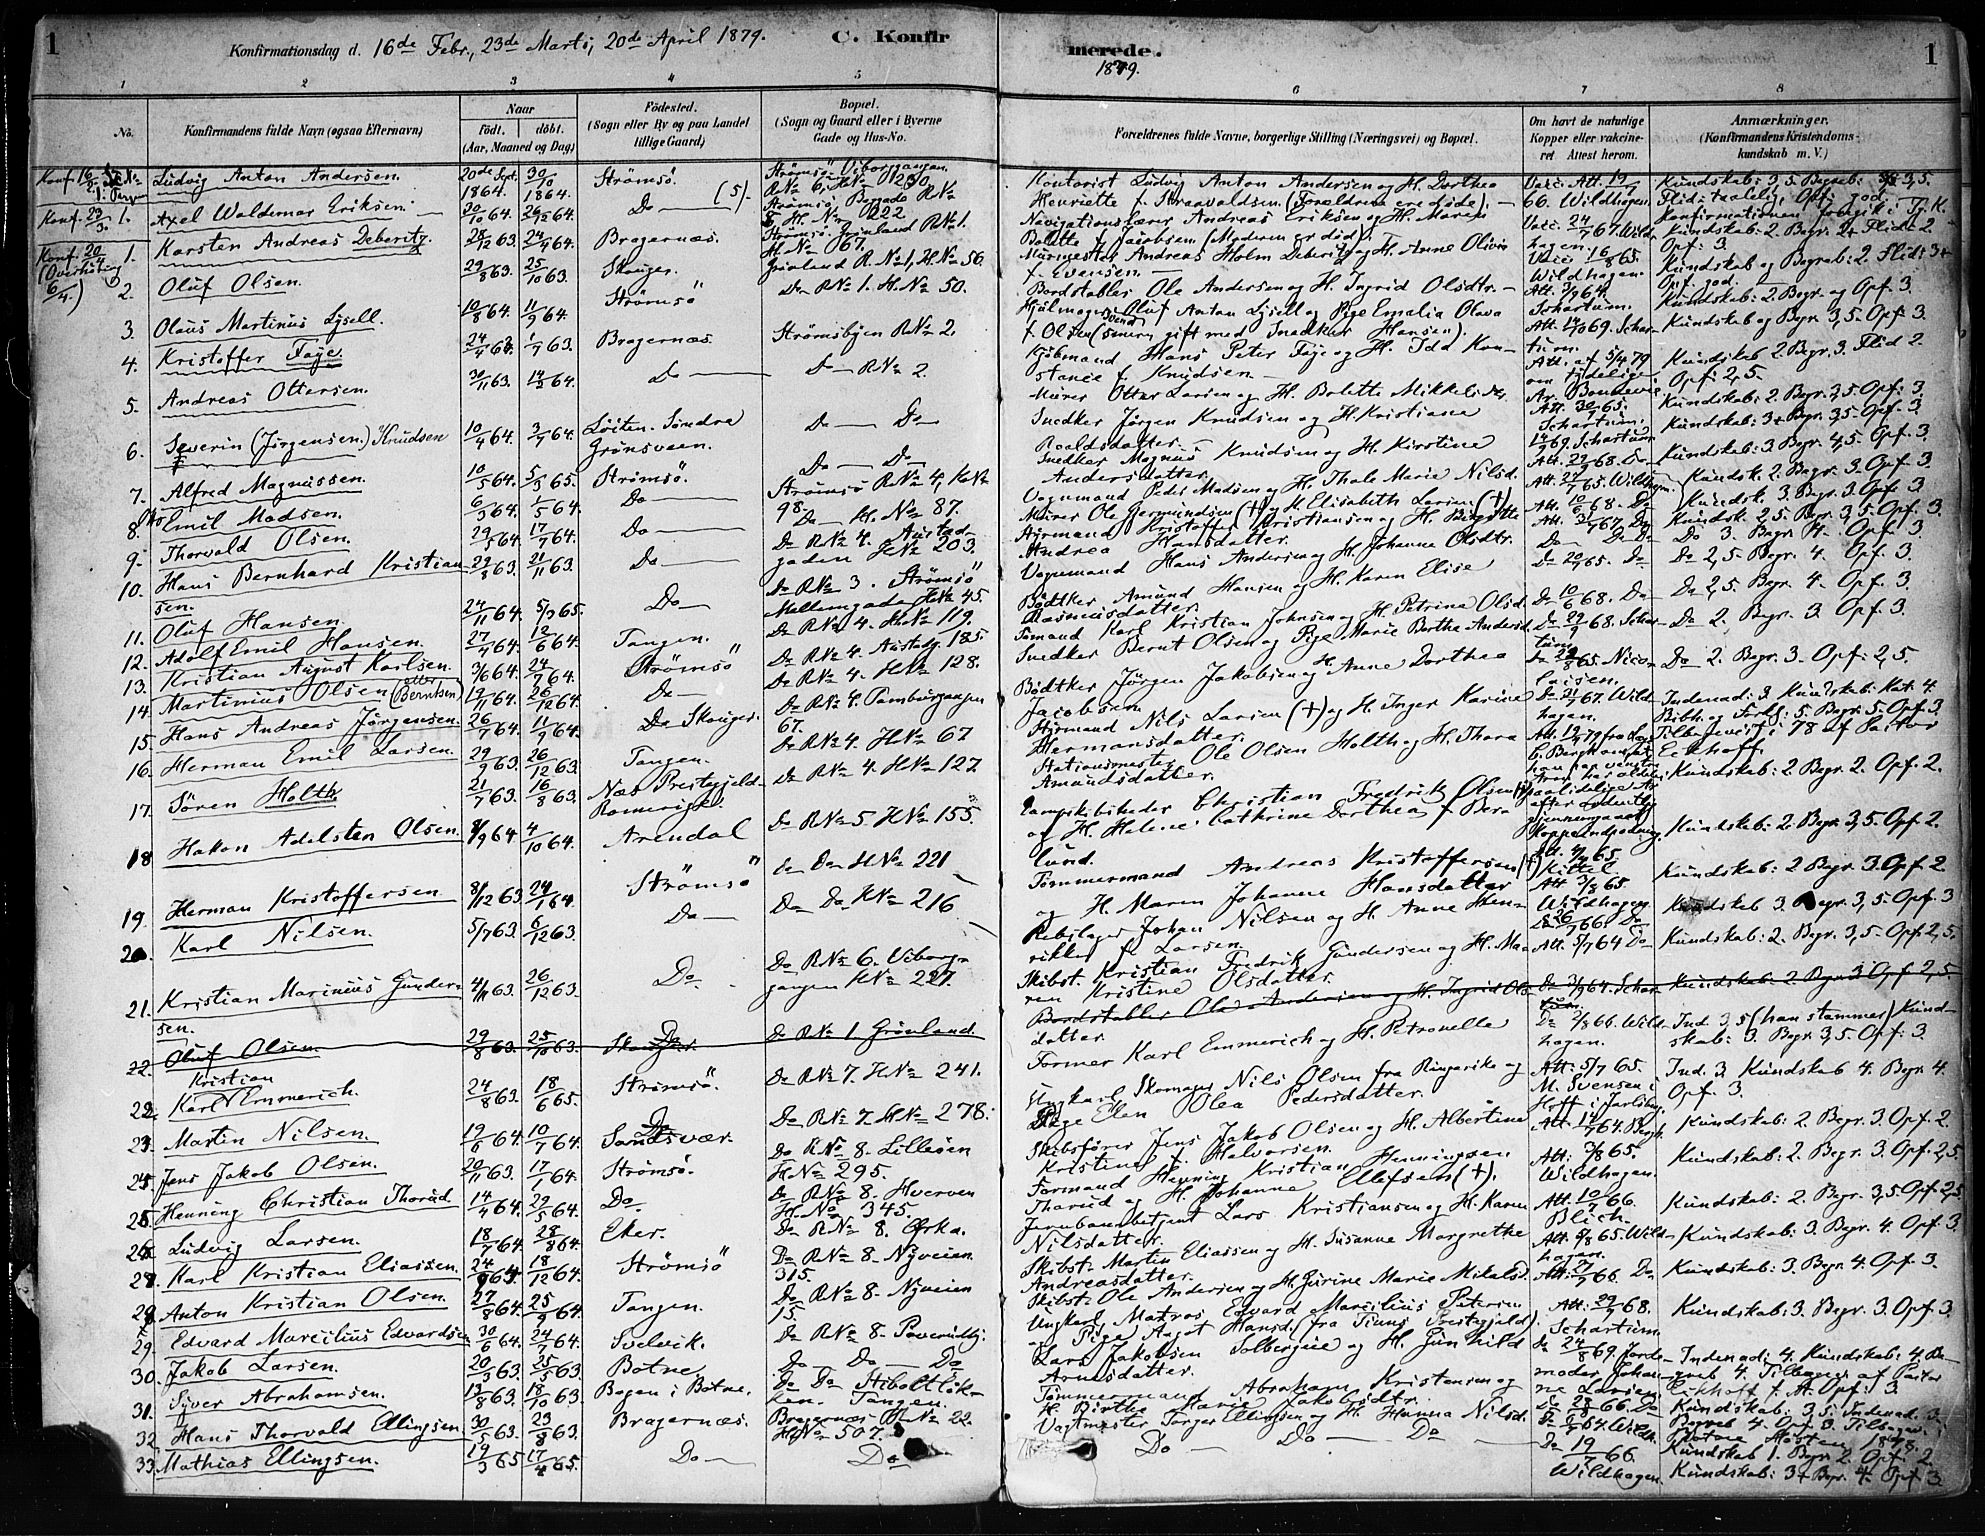 1
Konfirmationsdag d. 16de Febr., 23de Marts, 20de April 1879.
C. Konfir
merede.
1879.
1
1 2 3 4 5 6 7 8
No.
Konfirmandens fulde Navn (ogsaa Efternavn)
Naar
født. døbt.
(Aar, Maaned og Dag)
Fødested.
(Sogn eller By og paa Landet
tillige Gaard)
Bopæl.
(Sogn og Gaard eller i Byerne
Gade og Hus-No.
Forældrenes fulde Navne, borgerlige Stilling (Næringsvei) og Bopæl.
Om havt de naturlige
Kopper eller vakcine-
ret Attest herom.
Anmærkninger.
(Konfirmandens Kristendoms-
kundskab m. V.)
Konf. 16/2
Ludvig Anton Andersen.
20de Sept. 1864. 30/10 1864.
Strømsö.
Strømsö Viborggangen
Konf. 23/3 1. Axel Waldemar Eriksen. 30/10 64.
Do (5).
Strømsö Bergade R№
8 H. № 222
Konf. 20/4 1. Karsten Andreas Deberitz. 28/12 63. 24/4 64. Bragernæs.
Strømsö Grönland R№ 1.
H. № 67.
(Overhöring
6/4.)
2. Oluf Olsen. 29/8 63. 25/10 63. Skouger. Grönland R. № 1, H№ 56.
3. Olaus Martinus Lysell. 10/8 64. 11/9 64. Strömsö Do R№ 1. H. № 50.
4. Kristoffer Faye. 1/7 63. Bragernæs. Strömsbyen R№ 2.
5. Andreas Ottersen. 30/11 63. 14/2 64. Do Do R№ 2.
6. Severin (Jörgensen) Knudsen 10/4 64. 3/7 64. Löiten. Söndre
Grönsveen. Do Do
7. Alfred Magnussen. 10/5 64. 5/3 65. Strömsö. Do Do
8. Emil Madsen. 6/3 64. 1/5 64. Do Strömsö R№ 4, H№
98.
9. Thorvald Olsen. 29/5 64. 17/7 64. Do Do H. № 87.
10. Hans Bernhard Kristian
sen. 29/8 63. 21/11 63. Do Do R№ 4. Austad-
gaden H№ 203.
11. Oluf Hansen. 24/11 64. 5/2 65. Do Do R№ 3. Strömsö
Mellemgade H№ 45.
12. Adolf Emil Hansen. 27/4 64. 12/6 64. Tangen. Do R№ 4. H№ 119.
13. Kristian August Karlsen. 3/6 64. 24/7 64. Strömsö Do R№ 4. Austadg. 185.
14. Martinius Olsen eller (Berntsen) 19/11 64. 26/12 64. Do Do R№ 4. H№ 128.
15. Hans Andreas Jörgensen. 26/7 64. 11/9 64. Do Skouger. Do R№ 4. Tamburgangen
67.
16. Herman Emil Larsen. 29/9 63. 26/12 63. Tangen. Do R№ 4. H№ 67
17. Sören Holth. 21/7 63. 16/8 63. Næs Prestegjeld
Romerige. Do R№ 4. H№ 127.
18. Hakon Adelsten Olsen. 8/9 64. 4/10 64. Arendal Do R№ 5. H№ 155.
19. Herman Kristoffersen 8/12 63. 24/1 64. Strömsö Do Do H№ 221
20. Karl Nilsen. 5/7 63. 6/12 63. Do Do Do H№ 216
21. Kristian Marinius Gunder-
sen. 4/11 63. 26/12 63. Do Do R№ 6. Viborg-
gangen H№ 227.
22. Oluf Olsen 29/8 63. 25/10 63. Skouger Do Do R№ 1. Grönland.
22. Karl Kristian Emmerich. 24/8 63. 18/6 65. Strömsö. Do R№ 7. H№ 241.
23. Martin Nilsen. 19/6 64. 10/7 64. Sandsvær. Do R№ 7. H№ 278.
Jens Jakob Olsen. 20/11 63. 17/1 64. Strömsö. Do R№ 8. Lilleöen
H№ 295.
Henning Christian Thorud 14/4 64. 29/5 64. Do Do R№ 8. Hverven
H№ 345.
Ludvig Larsen. 18/7 64. 28/8 64. Eker. Do R№ 8. Örka.
Karl Kristian Eliassen. 18/12 64. Strömsö Do R№ 8. Nyveien
315.
Anton Kristian Olsen. 27/8 64. 25/9 64. Tangen. Do R№ 8. Nyveien
15.
29. Edvard Marcilius Edvardsen 30/6 64. 24/7 64. Svelvik. Do R№ 8.
30. Jakob Larsen. 20/3 63. 25/5 63 Botne. Do Do Do
31. Syver Abrahamsen. 19/8 63. 18/10 63. Bogen i Botne. Do Do Stiboltlök-
ken. Tangen.
32. Hans Thorvald Ellingsen 30/5 63. 23/8 63. Bragernæs. Bragernæs R№ 22.
H№ 507.
33. Mathias Ellingsen. 19/3 65 17/4 65. Do Do
Kontorist Ludvig Anton Andersen og H. Dorthea
Henriette f. Thorvaldsen. (Forældrene ere döde).
Navigationslærer Andreas Eriksen og H. Maren
Bolette f. Jacobsen (Moderen er död).
Murmester Andreas Holm Deberitz og H. Anne Olivia
f. Evensen.
Bordstabler Ole Andersen og H. Ingrid Olsdtr.
Hjulmagersvend Oluf Anton Lysell og Pige Emalia Olava
f. Olsen (senere gift med Snedker Hansen).
Kjöbmand Hans Peter Faye og H. Ida Kon-
stance f. Knudsen.
Murer Otter Larsen og H. Bolette Mikkelsdtr
Snedker Jörgen Knudsen og H. Kristiane
Roaldsdatter.
Snedker Magnus Knudsen og H. Kirstine
Andersdatter.
Vognmand Peder Madsen og H. Thale Marie Nilsd.
Murer Ole Germundsen (+) og H. Elisabeth Larsen (+)
Styrmand Kristoffer Kristiansen og H. Birgitte
Andrea Hansdatter.
Vognmand Hans Andersen og H. Johanne Olsdtr.
Bödtker Amund Hansen og H. Karen Elise
Rasmusdatter.
Sömand Karl Kristian Johnsen og H. Petrine Olsd.
Snedker Bernt Olsen og Pige Marie Berthe Andersd.
Bödtker Jörgen Jakobsen og H. Anne Dorthea
Jacobsen.
Styrmand Nils Larsen (+) og H. Inger Karine
Hermansdatter.
Stationsmester Ole Olsen Holth og H. Thora
Amundsdatter.
Christian Fredrik Olsen
og H. Helene Cathrine Dorthea f. Berg
lund.
Tömmermand Andreas Kristoffersen (+)
og H. Maren Johanne Hansdatter
Rebslager Johan Nilsen og H. Anne Hen-
rikke f. Larsen.
Skibst. Kristian Fredrik Gundersen og H. Ma-
ren Kristine Olsdatter.
Bordstabler Ole Andersen og H. Ingrid Ols-
datter.
Former Karl Emmerich og H. Petronelle
Ungkarl Skomager Nils Olsen fra Ringerike og
Pige Elen Olea Pedersdatter.
Skibsförer Jens Jakob Olsen og H. Albertine
Kristine f. Halvorsen.
Formand Henning Kristian Henningsen
Thorud og H. Johanne Ellefsen (+).
Jernbanebetjent Lars Kristiansen og H. Karen
Nilsdatter.
Skibst. Martin Eliassen og H. Susanne Margrethe
Andreasdatter.
Skibst. Ole Andersen og H. Gurine Marie Mikalsd.
Ungkarl, Matros Edvard Marcilius Petersen
og Pige Aagot Hansd. (fra Tinns Prestegjeld).
Lars Jakobsen Solbergeie og H. Gunhild
Arnesdatter.
Tömmermand Abraham Kristensen og
H. Birthe Marie Jakobsdtr.
Vagtmester Torger Ellingsen og H. Hanna Nilsd.
Do Do Do
Vacc. Att. 19/7
66. Wildhagen.
Vacc. 24/7 67. Wild
hagen.
Vacc. 16/8 65
Wildhagen.
Att. 3/9 64.
Schartum.
Att. 14/10 69. Schar-
tum.
Att. af 5/4 79
om tydelige
Ar. Bondevie
Att. 30/7 65.
Schartum.
14/9 69. Schartum
Att. 22/9 68. Do
Att. 27/7 65. Wildhagen.
Att. 10/6 68. Do
Att. 3/7 67. Do
Do Do Do
Do 20/7 65. Do
Do 10/6 68. Do
Do 29/9 68. Schar-
tum
65. Nico-
laisen.
Do 21/7 67. Wild
hagen.
Kittel
Att. 3/8 65.
Wildhagen.
Do 26/7 66. Do
Att. 5/7 64 Do
Do 3/9 64. Schar-
tum.
Do 2/8 66. Wild
hagen.
Att. 5/7 65.
M. Svensen i
Hoff i Jarlsberg.
Att. 14/7 64. Bergh.
Att. 3/8 65.
Wildhagen.
Att. 10/7 66
Blich.
Att. 9/8 65. Wild-
hagen.
Att. 27/7 66. Do
Att. 29/7 68.
Schartum.
Do 24/8 69. Jorde-
moder Johan-
ne Larsen.
66. Do
64. Wildh.
Do 19/7 66.
Wildhagen.
Kundskab: 3,5. Begreb: 3,5.
Flid: taalelig, Opf: god.
Konfirmationen foregik i T. K.
Kundskab: 2. Begr. 2+ Flid: 2
Opf: 3.
Kundskab og Begreb: 2 Flid: 3+
Opf. god.
Kundskab: 2. Begr. og Opf. 3.
Kundskab og Begr. 3,5. Opf. 3.
Kundskab 2. Begr. 3. Flid 2.
Opf: 2,5.
Kundskab: 2. Begr. 3,5 Opf: 3.
Kundskab: 3+ Begr. 3,5 Opf. 3.
Kundskab: 3 Begr. 4,5. Opf. 3.
Kundsk. 2. Begr. 3. Opf. 3.
Kundsk. 3. Begr. 3 Opf. 3.
Kundsk. 2,5. Begr. 3,5. Opf. 3.
Do 3. Begr. 4. Opf. 3.
Do 2,5 Begr. 4. Opf. 3.
Do 2,5. Begr. 4. Opf. 3.
Do 2. Begr. 3. Opf. 3.
Do 2. Begr. 3. Opf: 2,5.
Indenad: 3. Kundskab: Kat. 4.
Bibh. og Forkl: 5. Begr. 5. Opf. 3.
Tilbagevist i 78 af Pastor
Eckhoff.
Kundskab: 2 Begr. 2. Opf. 2.
Kundskab: 2. Begr. 3,5. Opf. 2.
Kundskab: 2 Begr. 3. Opf. 2
Kundskab 3. Begr. 3,5. Opf. 3
Kundskab: 2. Begr. 3,5. Opf. 2,5.
Kundskab: 2 Begr. 3 Opf. 2,5.
Ind. 3,5 (han stammer) Kund-
skab: 3. Begr. 3,5. Opf. 3.
Ind. 3. Kundskab 4. Begr. 4.
Opf. 3.
Kundskab: 2. Begr. 3. Opf. 2.
Kundskab: 2. Begr. 3. Opf. 2,5.
Kundskab: 2. Begr. 3,5. Opf. 2,5.
Kundskab: 3. Begr. 4. Opf. 3.
Kundskab: 3. Begr. 4. Opf. 3.
Kundskab: 3. Begr. 3. Opf. 3.
Indenad: 4. Kundskab: 4. Be-
greb 4. Tilbagev. af Pastor
Eckhoff f. A. Opf: 3.
Kundskab: 3,5 Indenad. 3
Begreb 4. Opf. 3. Tilbagev. i
Botne Hösten 1878.
Kundskab 1. Begr. 2. Opf. 2.
Kundskab: 3+ Begr. 4. Opf. 3